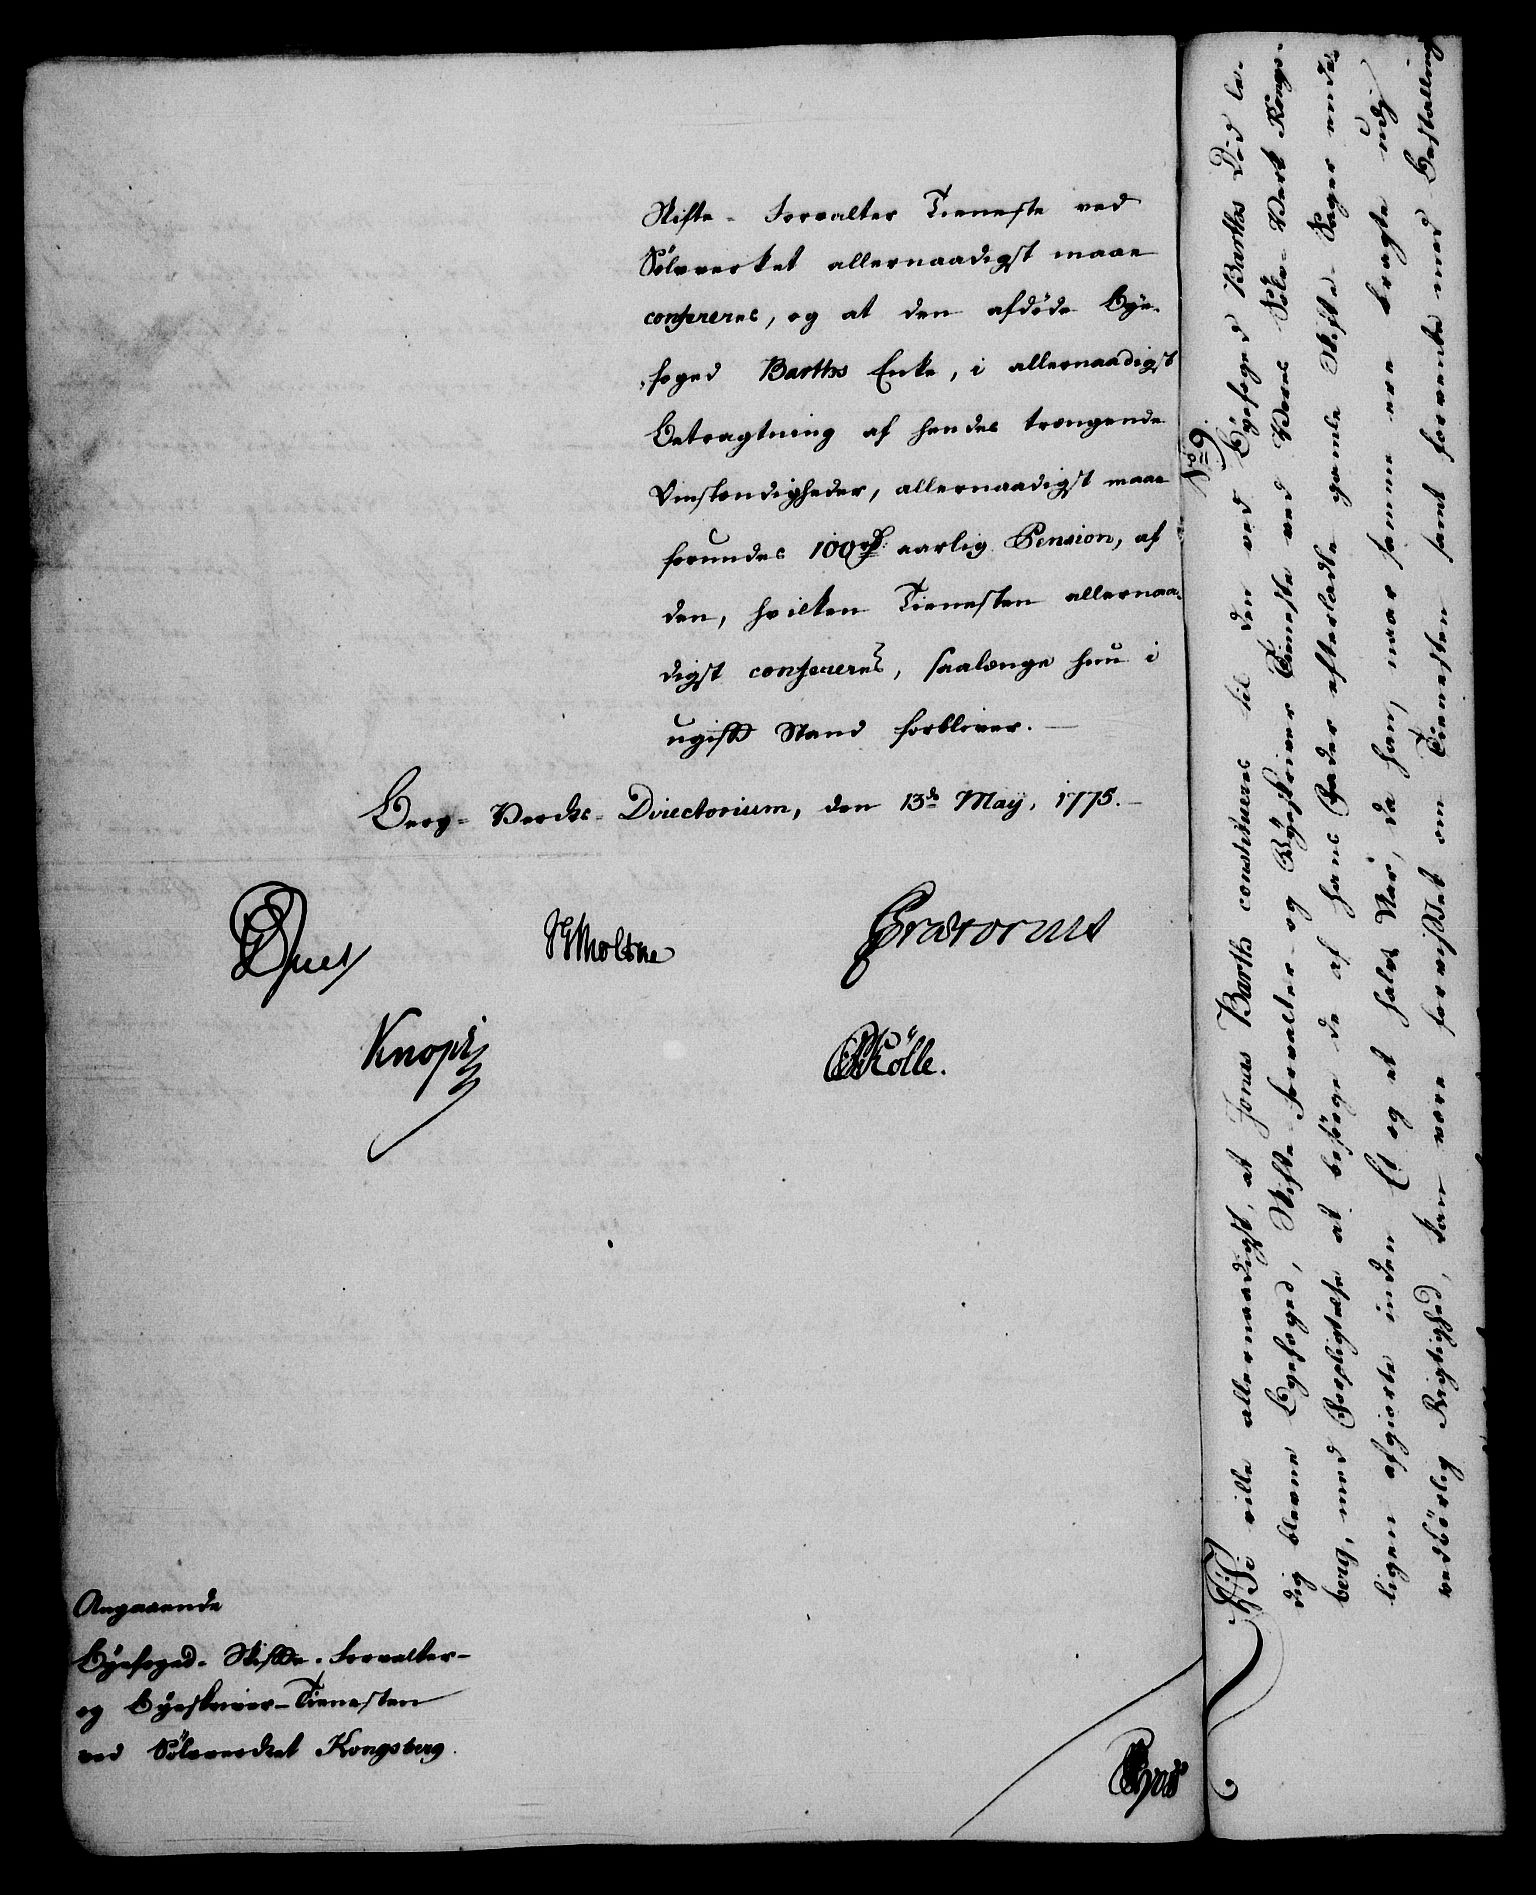 Skifte-Forvalter Tieneste ved
Sølvverket allernaadigst maae
confereres, og at den afdøde Bye-
foged Barths Enke, i allernaadigst
Betragtning af hendes trængende
Omstændigheder, allernaadigst maae
forundes 100 rd: aarlig Pension, af
den, hvilken Tienesten allernaa-
digst confereres, saalænge hun i
ugift Stand forbliver. —
Berg-Verks-Directorium, den 13de May, 1775. —
Moltke
Prætorius
Knoph
Kølle.
Angaaende
Byefoged- Skifte-Forvalter-
og Byeskriver-Tienesten
ved Sølvverket Kongsberg.
No 9.
Vi ville allernaadigst, at Jonas Barth constitueres til den ved Byefoged Barths Død le-
dig blevne Byefoged, Skifte-Forvalter- og Byeskriver Tieneste ved Vores Sølv-Verk Kongs-
berg, med Forpligtelse at besørge de af hans Fader efterladte gamle Skifte-Sager ende-
ligen afgiorte inden Et og et halvt Aar, da han, naar samme ere bragte udj
vedbørlig Rigtighed, kan være forvisset om Tienesten samt forvente med Bestalling